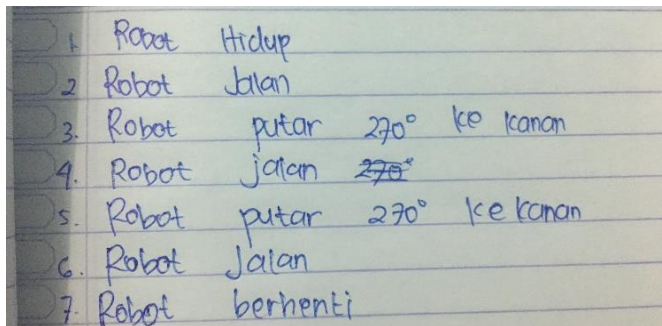 1. Robot Hidup
2 Robot Jalan
3. Robot putar 270° ke kanan
4. Robot jalan 270°
5. Robot putar 270° ke kanan
6. Robot Jalan
7. Robot berhenti